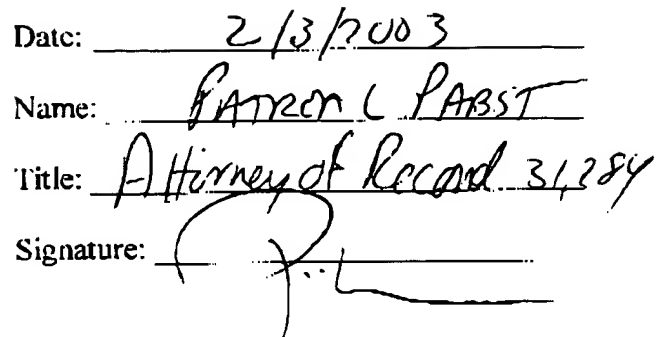 Date: 2/3/2003
Name: PATREA L PABST
Title: Attorney of Record 31,284
Signature: